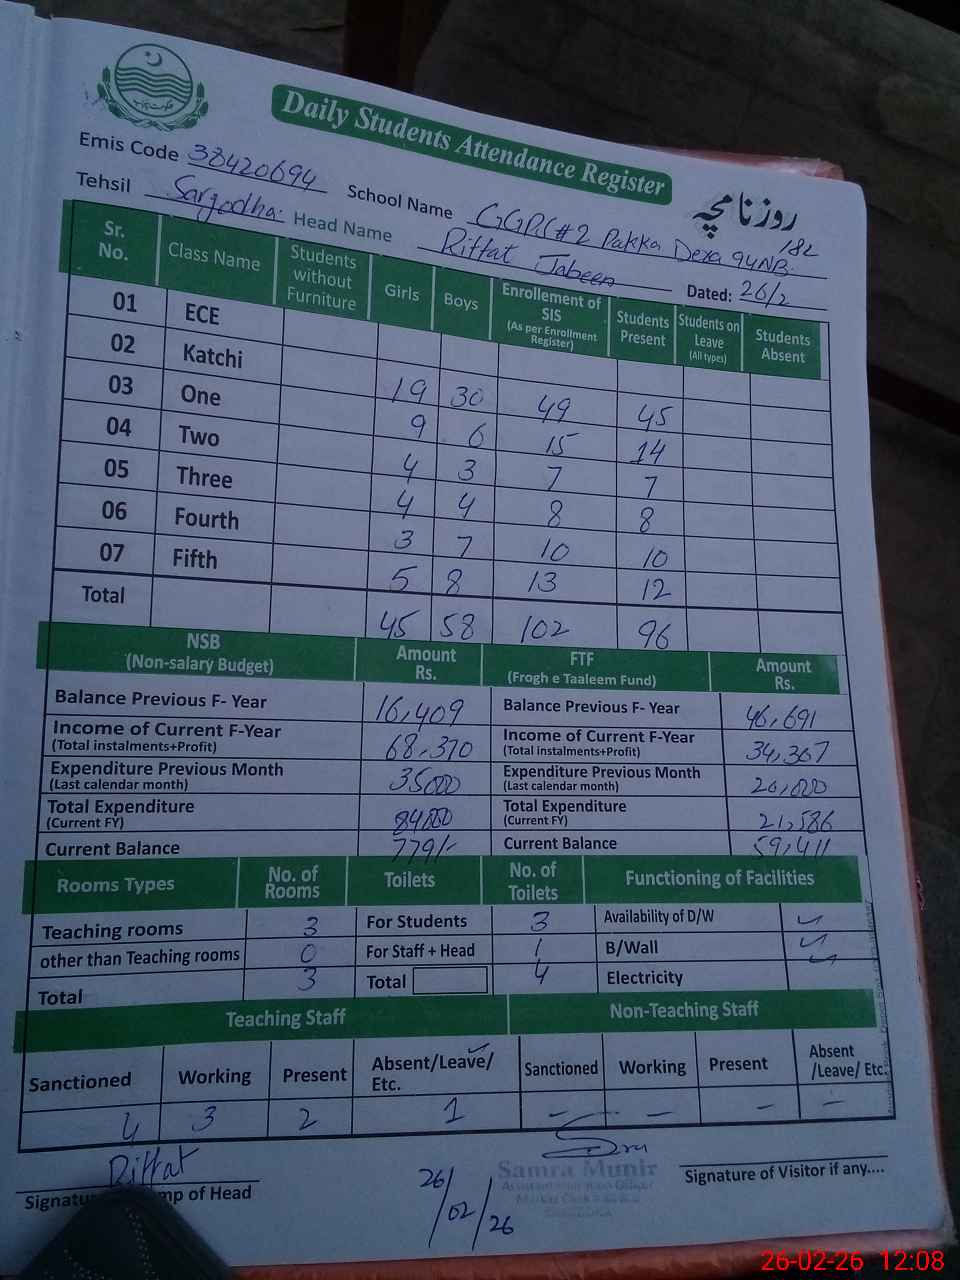 Daily Students Attendance Register
روزنامچہ
Emis Code 38420694 School Name GGPS #2 Pakka Dera 94NB
182
Tehsil Sargodha Head Name Riffat Jabeen Dated: 26/2
Sr. No. Class Name Students without Furniture Girls Boys Enrollement of SIS (As per Enrollment Register) Students Present Students on Leave (All types) Students Absent
01 ECE
02 Katchi 19 30 49 45
03 One 9 6 15 14
04 Two 4 3 7 7
05 Three 4 4 8 8
06 Fourth 3 7 10 10
07 Fifth 5 8 13 12
Total 45 58 102 96
NSB (Non-salary Budget) Amount Rs. FTF (Frogh e Taaleem Fund) Amount Rs.
Balance Previous F- Year 16,409 Balance Previous F- Year 46,691
Income of Current F-Year (Total instalments+Profit) 68,370 Income of Current F-Year (Total instalments+Profit) 34,307
Expenditure Previous Month (Last calendar month) 35000 Expenditure Previous Month (Last calendar month) 20,000
Total Expenditure (Current FY) 84000 Total Expenditure (Current FY) 21,586
Current Balance 779/- Current Balance 59,411
Rooms Types No. of Rooms Toilets No. of Toilets Functioning of Facilities
Teaching rooms 3 For Students 3 Availability of D/W ✓
other than Teaching rooms 0 For Staff + Head 1 B/Wall ✓
Total 3 Total 4 Electricity ✓
Teaching Staff Non-Teaching Staff
Sanctioned Working Present Absent/Leave/ Etc. Sanctioned Working Present Absent /Leave/ Etc.
4 3 2 1 - - - -
Riffat
Signature mp of Head
26/02/26
Samra Munir
Signature of Visitor if any....
26-02-26 12:08